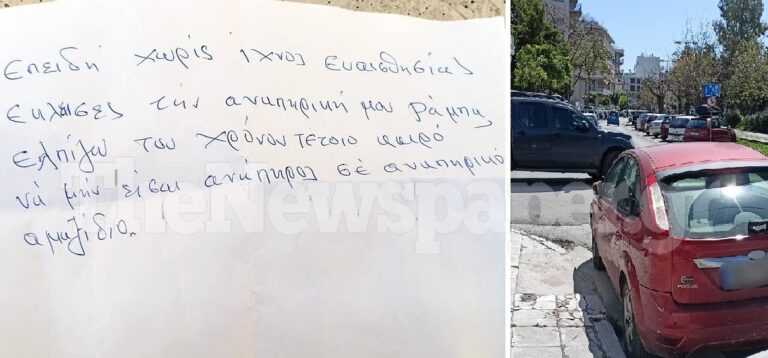 Επειδή χωρίς ίχνος ευαισθησίας
έκλεισες τήν αναπηρική μου ράμπα,
ελπίζω του χρόνου τέτοιο καιρό
νά μήν είσαι ανάπηρος σέ αναπηρικό
αμαξίδιο.
TheNewspaper.gr
FOCUS